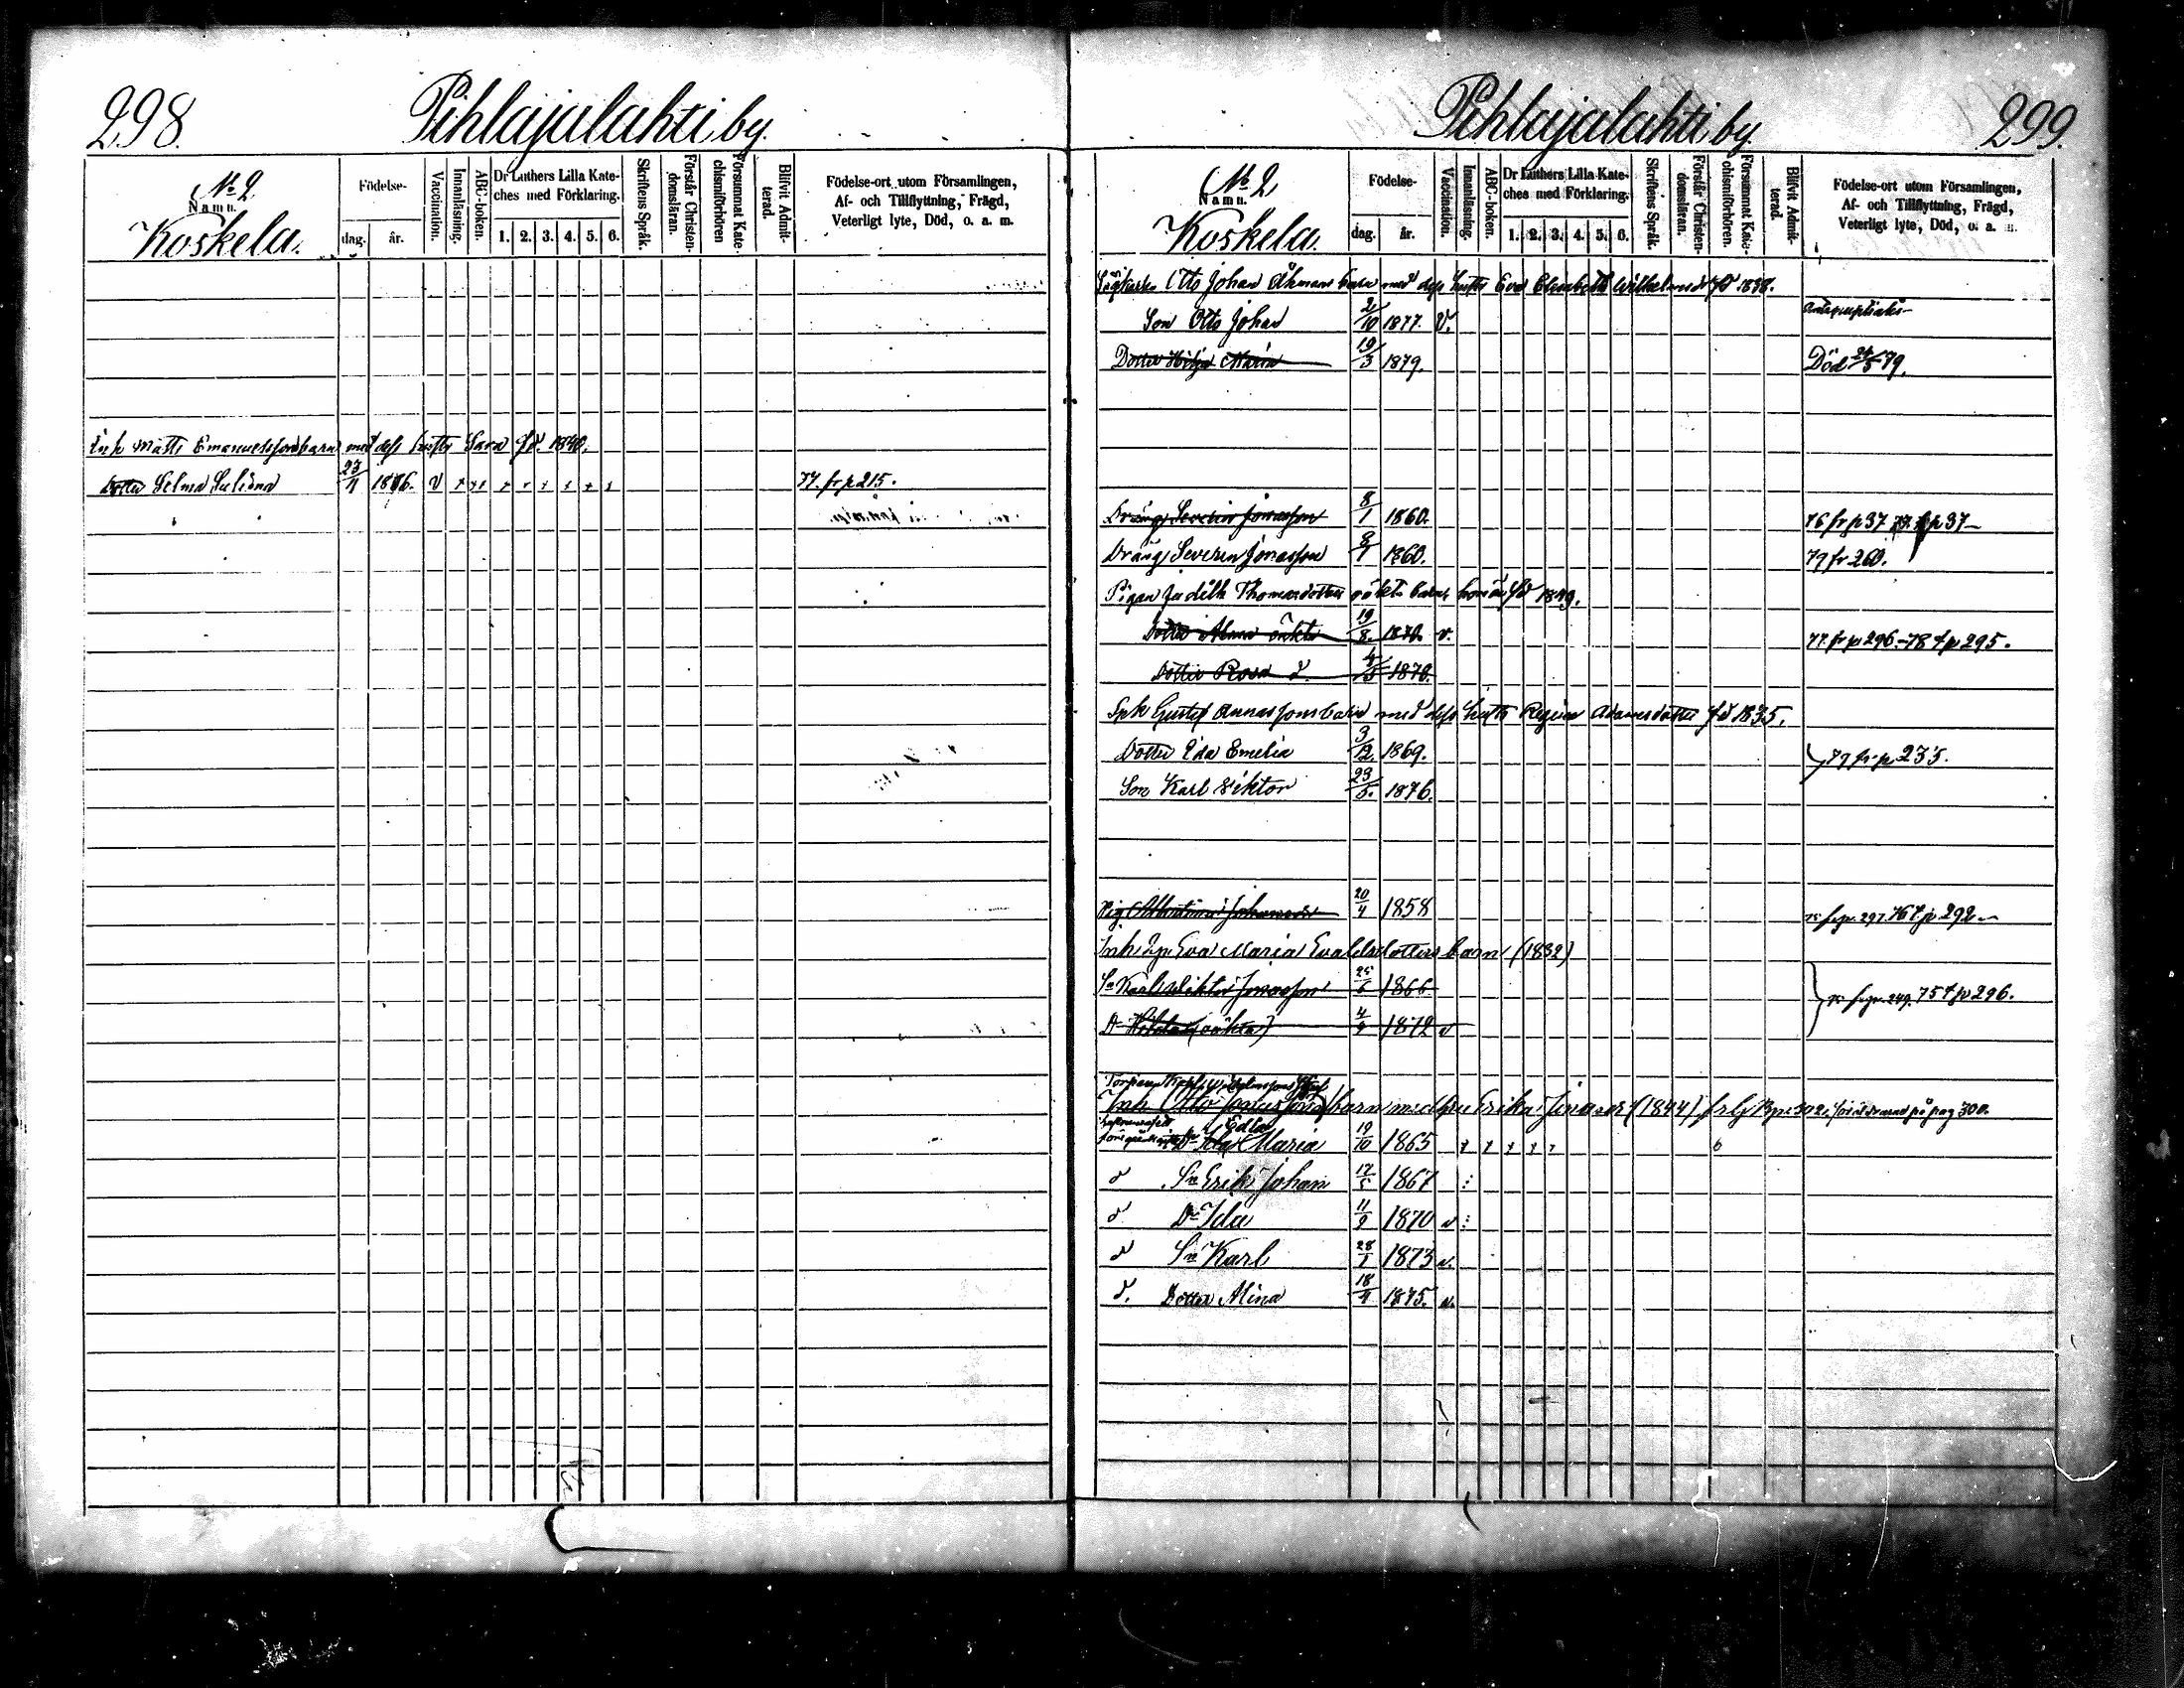 298.
Pihlajalahti by.
No 2.
Namn.
Koskela.
Födelse-
dag.
år.
Vaccination.
Innanläsning.
ABC-boken.
Dr Luthers Lilla Kate-
ches med Förklaring.
1. 2. 3. 4. 5. 6.
Skriftens Språk.
Förstår Christen-
domsläran.
Försummat Kate-
chismiförhören
Blifvit Admit-
terad.
Födelse-ort utom Församlingen,
Af- och Tillflyttning, Frägd,
Veterligt lyte, Död, o. a. m.
Inh Matts Emanuelssons barn med dess hustru Sara fd. 1840.
Dotter Selma 23/11 1876. v x x x x x x x x 77. fr p 215.
Pihlajalahti by.
299.
No 2
Namn.
Koskela.
Födelse-
dag.
år.
Vaccination.
Innanläsning.
ABC-boken.
Dr Luthers Lilla Kate-
ches med Förklaring.
1. 2. 3. 4. 5. 6.
Skriftens Språk.
Förstår Christen-
domsläran.
Försummat Kate-
chismiförhören.
Blifvit Admit-
terad.
Födelse-ort utom Församlingen,
Af- och Tillflyttning, Frägd,
Veterligt lyte, Död, o. a. m.
Otto Johan Åhmans barn med dess hustru Eva Elisabeth fd 1838.
Son Otto Johan 2/10 1877. V.
Dotter Hilja Maria 19/3 1879. Död 24/5 79.
Dräng Severin Jonasson 8/1 1860. 76 fr p 37 p 37
Dräng Severin Jonasson 8/1 1860. 79 fr 260.
Pigan Judith Thomasdotters oäkta barn fd 1849.
Dotter Alma oäkta 19/8. 1870. v. 77. fr p 296. - 78 t p 295.
Dotter Rosa d 4/5 1870.
Gustaf Annassons barn med dess hustru Regina Adamsdotter fd 1835.
Dotter Ida Emelia 3/12. 1869. } 79 fr p 235.
Son Karl Viktor 23/5. 1876.
Pig Albertina Johansdr 20/4 1858 75 fr p. 297. 76 t p 292
Inh Eva Maria Evaldsdotters barn (1832)
Sn Karl Viktor Jonasson 25/6 1866 } 75 fr p. 249. 75 t p 296.
Dr Hilda (oäkta) 4/9 1872 v
Inh Otto barn med hu Erika Jonasdr (1844)
Edla
Dr Ida Maria 19/10 1865 x x x x x 6
d Sn Erik Johan 17/5 1867
d Dr Ida 11/9 1870 v
d Sn Karl 28/1 1873 v.
d. Dotter Alina 18/4 1875. v.